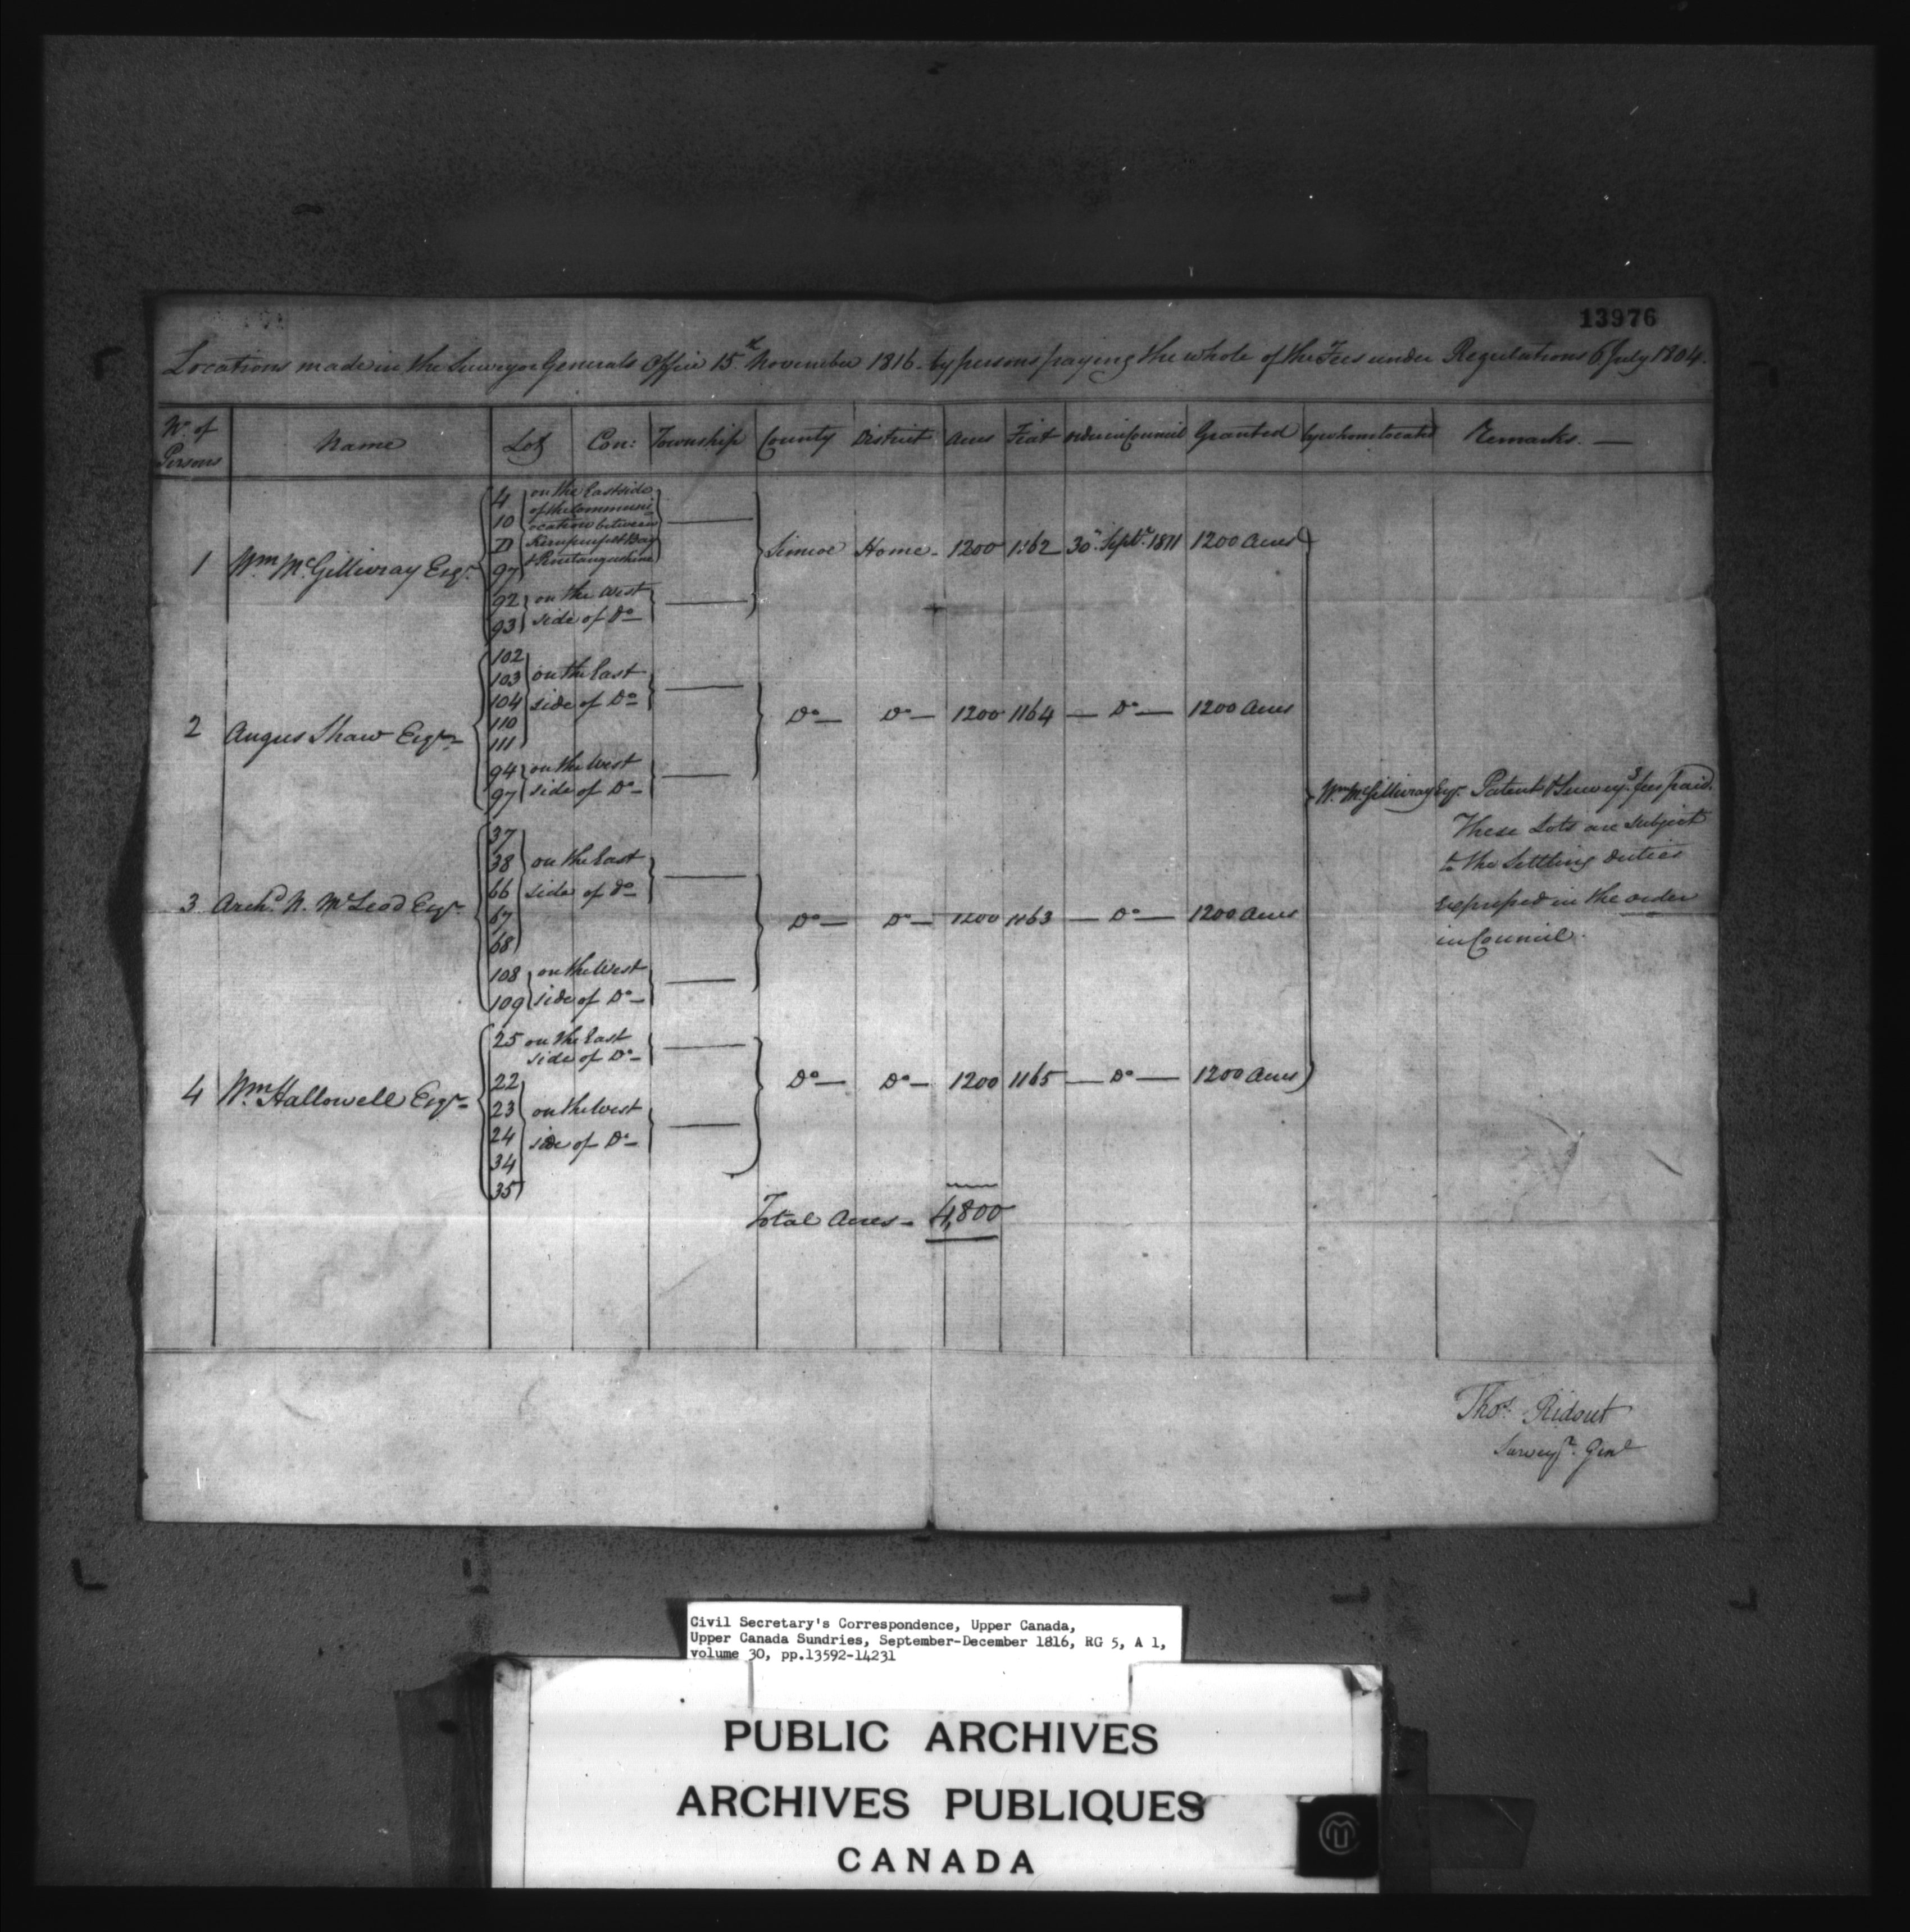 13976
Locations made in the Surveyor Generals Office 15th November 1816. by persons paying the whole of the Fees under Regulations 6 July 1804.
No. of Persons Name Lot Con: Township County District Acres Fiat order in Council Granted by whom located Remarks. —
1 Wm. McGillivray Esqr.
4 10 D 97 on the East side
of the Communi-
cation between
Kempenfelt Bay
& Penetanguishine
92 93 on the West
side of Do
Simcoe Home 1200 1162 30th Septr. 1811 1200 Acres
2 Angus Shaw Esqr.
102
103 on the East
104 side of Do
110
111
94 on the West
97 side of Do
Do Do 1200 1164 Do 1200 Acres
3 Archd. N. McLeod Esqr.
37
38 on the East
66 side of Do
67
68
108 on the West
109 side of Do
Do Do 1200 1163 Do 1200 Acres
4 Wm. Hallowell Esqr.
25 on the East
side of Do
22
23 on the West
24 side of Do
34
35
Do Do 1200 1165 Do 1200 Acres
Wm. McGillivray Esqr. Patent & Survey fees paid.
These Lots are subject
to the Settling duties
expressed in the order
in Council.
Total Acres 4,800
Thos. Ridout
Surveyr. Genl
Civil Secretary's Correspondence, Upper Canada,
Upper Canada Sundries, September-December 1816, RG 5, A 1,
volume 30, pp.13592-14231
PUBLIC ARCHIVES
ARCHIVES PUBLIQUES
CANADA